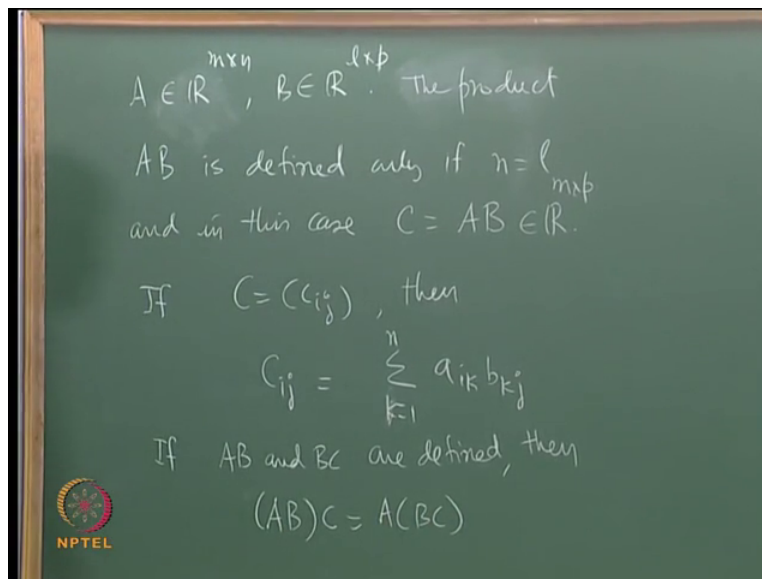 A ∈ ℝ^{m×n}, B ∈ ℝ^{l×p}. The product
AB is defined only if n = l
and in this case C = AB ∈ ℝ^{m×p}.
If C = (c_{ij}), then
c_{ij} = \sum_{k=1}^{n} a_{ik} b_{kj}
If AB and BC are defined, then
(AB)C = A(BC)
NPTEL